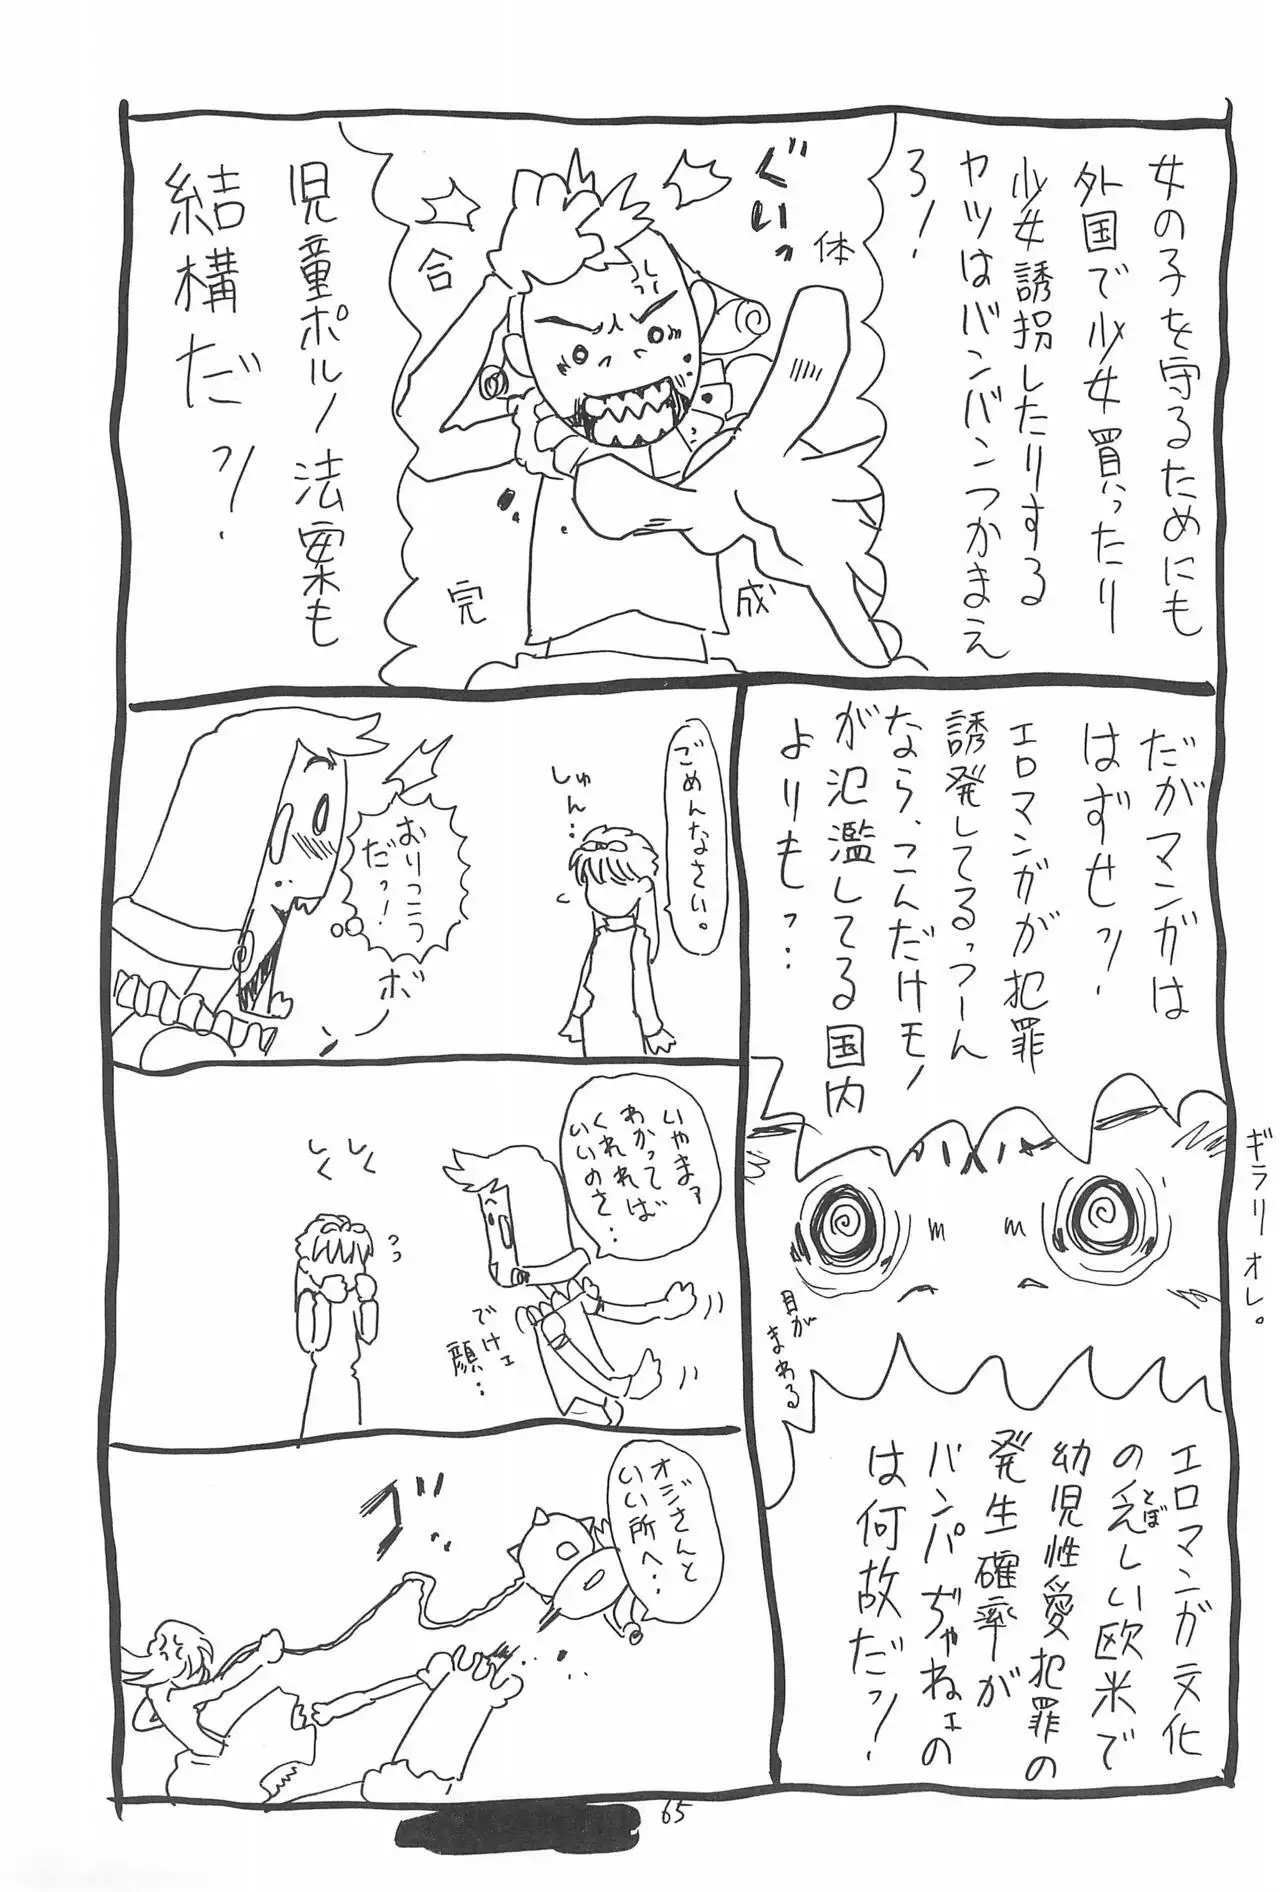 女の子を守るためにも
外国で少女買ったり
少女誘拐したりする
ヤツはバンバンつかまえ
ろ!
ぐいっ
合
体
完
成
児童ポルノ法案も
結構だっ!
だがマンガは
はずせっ!
エロマンガが犯罪
誘発してるっつーん
なら、こんだけモノ
が氾濫してる国内
よりも…
ギラリオレ。
目が
まわる
エロマンガ文化
の乏しい欧米で
とぼ
幼児性愛犯罪の
発生確率が
バンバぢゃねェの
は何故だっ!
ごめんなさい。
しゅん…
おりこう
だっ!
ボ
ン
いやまァ
わかって
くれれば
いいのさ…
でけェ
顔…
しく
しく
オジさんと
いい所へ…
ブ
65